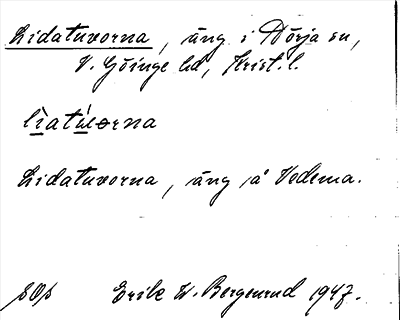 Lidatuvorna, äng i Nörja sn,
V. Göinge hd, Krist. l.
lìatúorna
Lidatuvorna, äng å Vedema.
SOs Erik W. Bergenrud 1947.